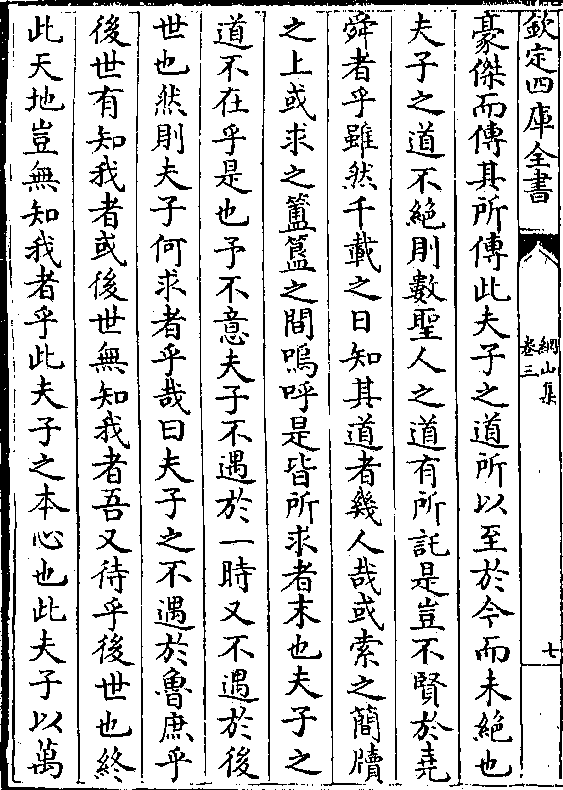 欽定四庫全書
綱山集
卷三
七
豪傑而傳其所傳此夫子之道所以至於今而未絶也
夫子之道不絶則數聖人之道有所託是豈不賢於堯
舜者乎雖然千載之日知其道者幾人哉或索之簡牘
之上或求之簠簋之間嗚呼是皆所求者末也夫子之
道不在乎是也予不意夫子不遇於一時又不遇於後
世也然則夫子何求者乎哉曰夫子之不遇於魯庶乎
後世有知我者或後世無知我者吾又待乎後世也終
此天地豈無知我者乎此夫子之本心也此夫子以萬